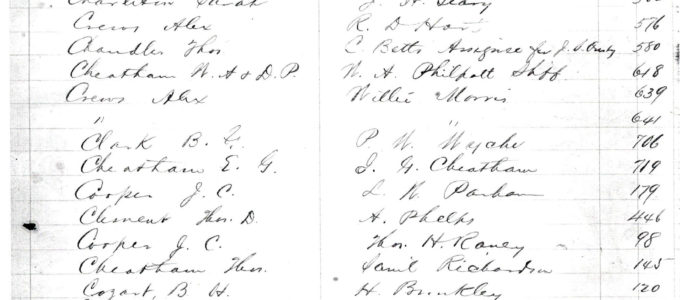 Charleston Sarah J. H. Seary
Crews Alex R. D. Hart 576
Chandler Thos. C Betts Assignee for J. S. 580
Cheatham W. A & D. P. W. A. Philpott Shff 618
Crews Alex Willie Morris 639
" " 641
Clark B. F. P. W. Wyche 706
Cheatham E. G. I. G. Cheatham 719
Cooper J. C. L. W. Parham 179
Clement Thos. D. A. Phelps 446
Cooper J. C. Thos. H. Raney 98
Cheatham Thos. Saml Richardson 145
Cozart, B H. H. Brinkley 120